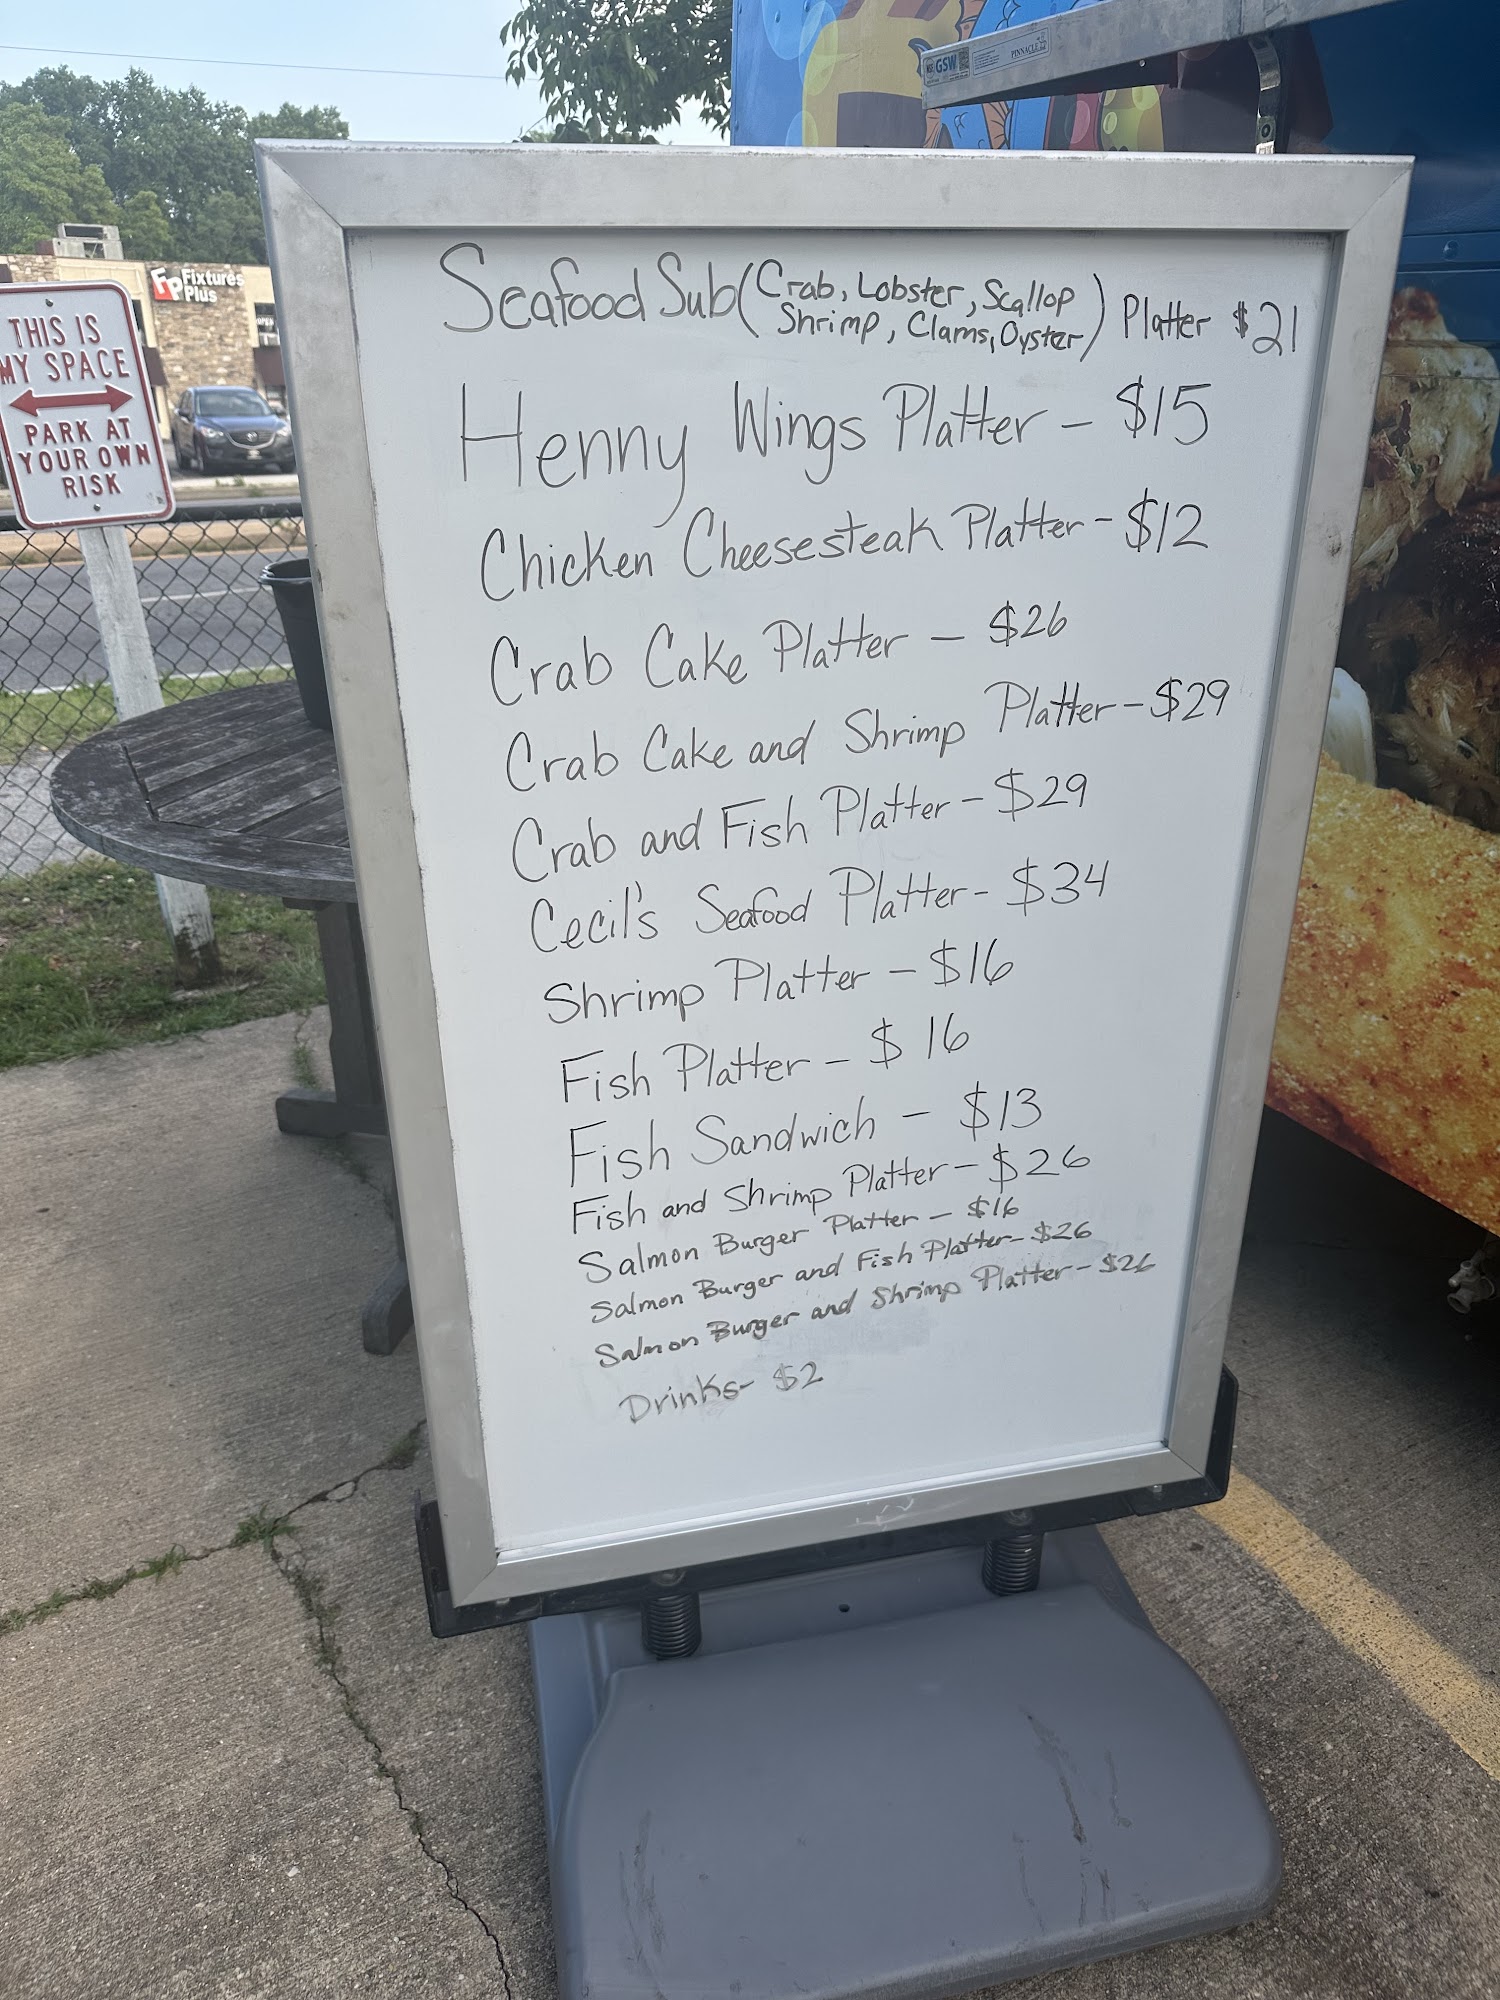 GSW
PINNACLE
FP Fixtures
Plus
OPEN
THIS IS
MY SPACE
PARK AT
YOUR OWN
RISK
Seafood Sub (Crab, Lobster, Scallop
Shrimp, Clams, Oyster) Platter $21
Henny Wings Platter - $15
Chicken Cheesesteak Platter - $12
Crab Cake Platter - $26
Crab Cake and Shrimp Platter - $29
Crab and Fish Platter - $29
Cecil's Seafood Platter - $34
Shrimp Platter - $16
Fish Platter - $16
Fish Sandwich - $13
Fish and Shrimp Platter - $26
Salmon Burger Platter - $16
Salmon Burger and Fish Platter - $26
Salmon Burger and Shrimp Platter - $26
Drinks - $2